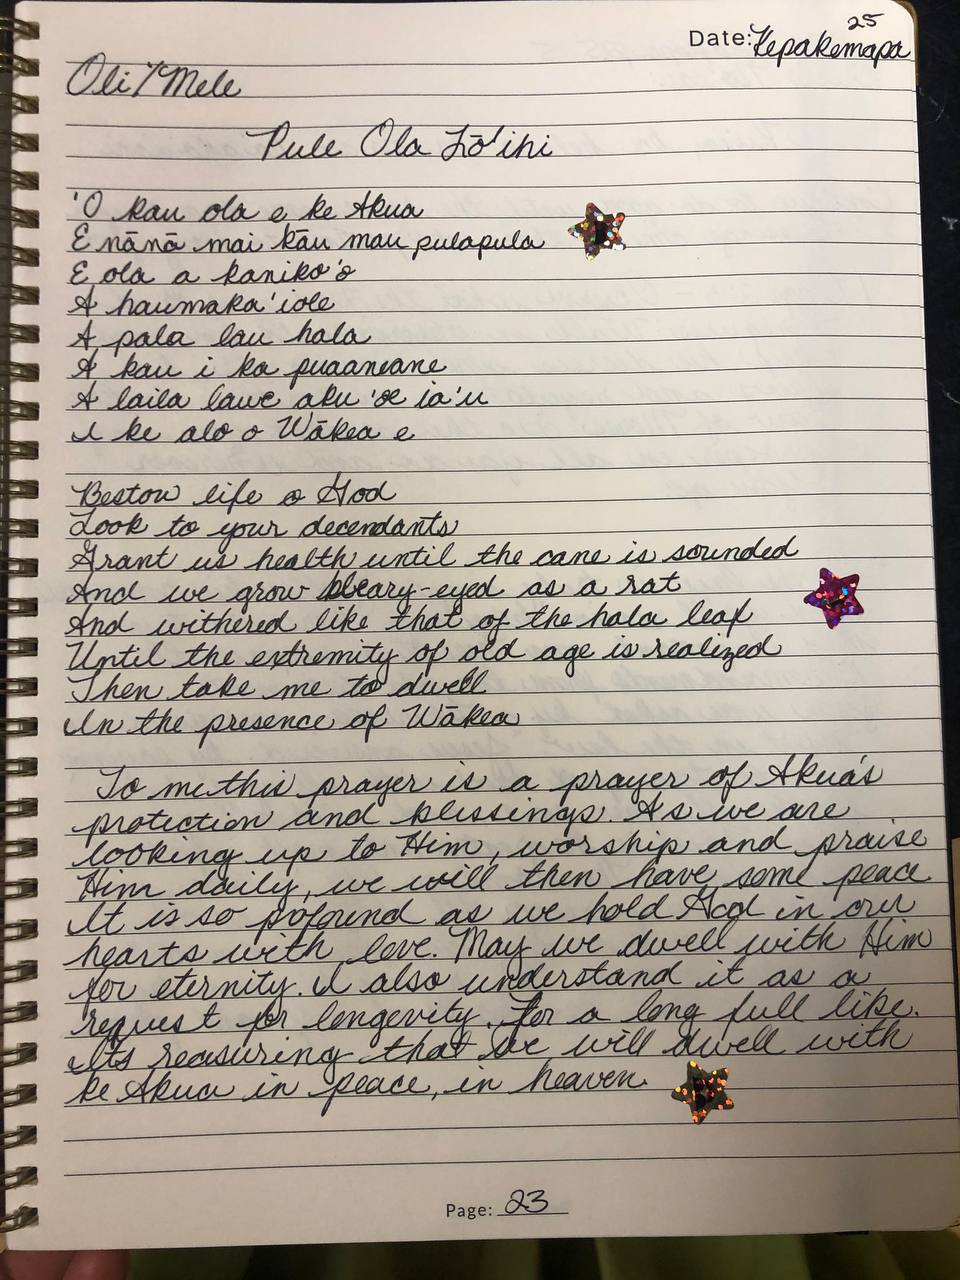 25
Date: Kepakemapa
Oli/Mele
Pule Ola Lō'ihi
'O kau ola e ke Akua
E nānā mai kāu mau pulapula
E ola a kaniko'o
A haumaka'iole
A pala lau hala
A kau i ka puaaneane
A laila lawe aku 'oe ia'u
I ke alo o Wākea e
Bestow life o God
Look to your decendants
Grant us health until the cane is sounded
And we grow bleary-eyed as a rat
And withered like that of the hala leaf
Until the extremity of old age is realized
Then take me to dwell
In the presence of Wākea
To me this prayer is a prayer of Akua's
protection and blessings. As we are
looking up to Him, worship and praise
Him daily, we will then have some peace
It is so pofound as we hold God in our
hearts with love. May we dwell with Him
for eternity. I also understand it as a
request for longevity. For a long full like.
Its reasuring that we will dwell with
ke Akua in peace, in heaven.
Page: 23